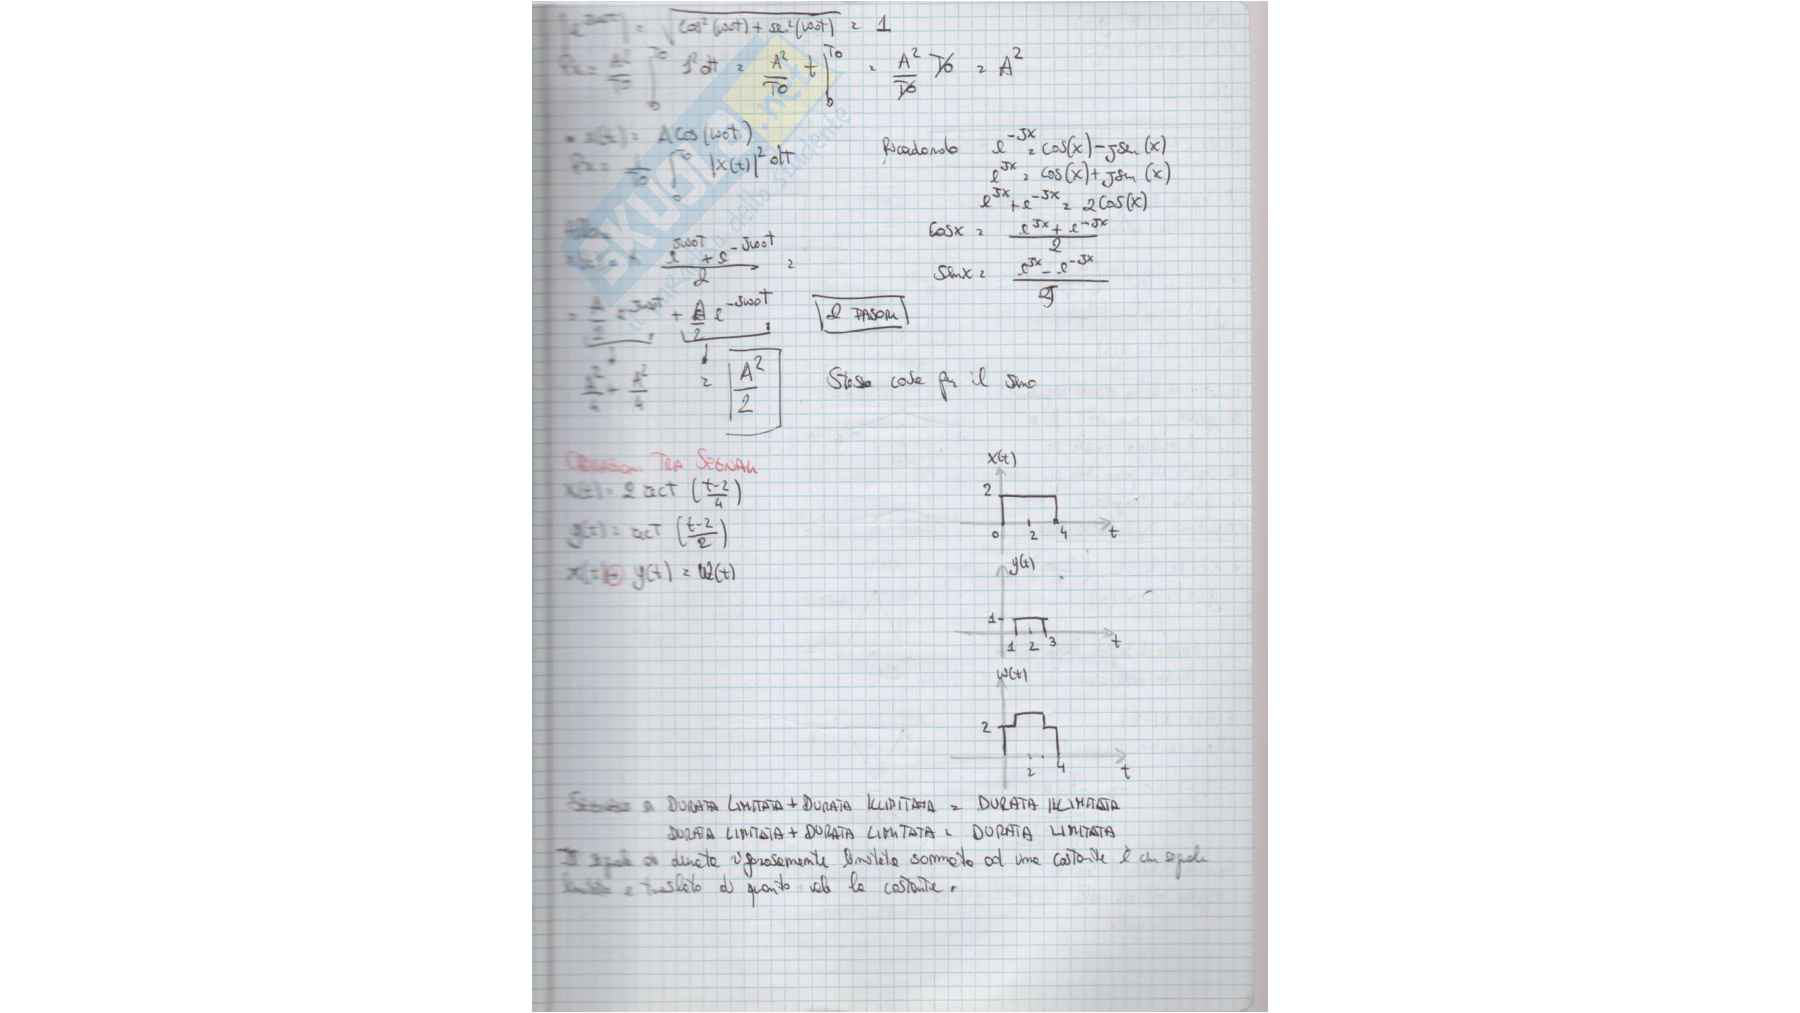 = √cos²(ωot) + sen²(ωot) = 1
Px = A²/To ∫ 1² dt = A²/To t | = A²/To To = A²
To
0
• x(t) = A cos(ωot)
Px = 1/To ∫ |x(t)|² dt
To
0
Ricordando e^-Jx = cos(x) - jsen(x)
e^Jx = cos(x) + jsen(x)
e^Jx + e^-Jx = 2cos(x)
cosx = (e^Jx + e^-Jx)/2
senx = (e^Jx - e^-Jx)/2J
(e^Jωot + e^-Jωot)/2 =
= A/2 e^Jωot + A/2 e^-Jωot
2 FASORI
A²/4 + A²/4 = A²/2
Stessa cosa per il seno
TRA SEGNALI
x(t) = 2 rect (t-2/4)
y(t) = rect (t-2/2)
x(t) + y(t) = w(t)
x(t)
2
0 2 4 t
y(t)
1
1 2 3 t
w(t)
2
2 4 t
a DURATA LIMITATA + DURATA ILLIMITATA = DURATA ILLIMITATA
DURATA LIMITATA + DURATA LIMITATA = DURATA LIMITATA
di durata rigorosamente limitata sommato ad una costante è un segnale
traslato di quanto vale la costante.
SKUOLA.net
dello studente